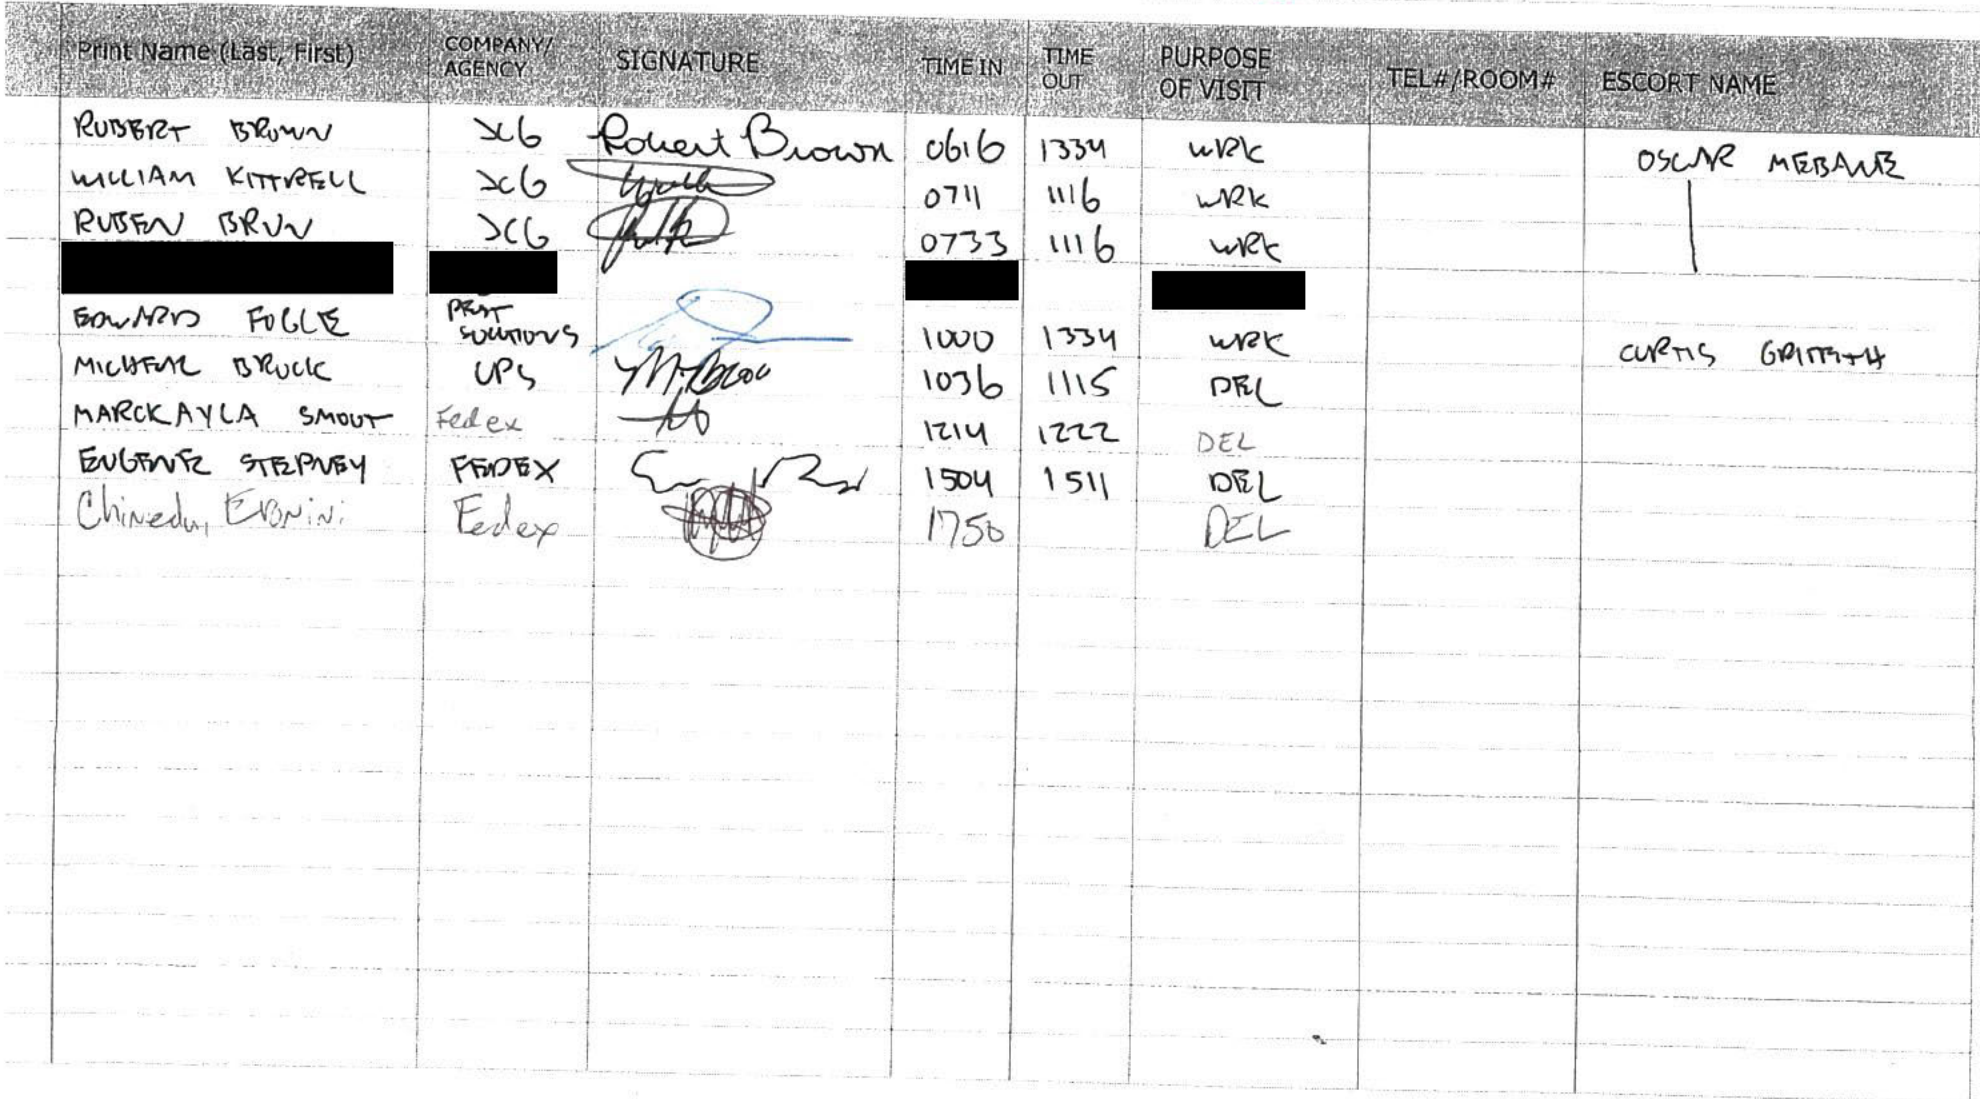 Print Name (Last, First) COMPANY/ AGENCY SIGNATURE TIME IN TIME OUT PURPOSE OF VISIT TEL#/ROOM# ESCORT NAME
ROBERT BROWN Robert Brown 0616 1334 WRK OSCAR MEBANE
WILLIAM KITTRELL 0711 1116 WRK
RUBEN BRUN 0733 1116 WRK
EDWARD FOGLE PEST SOLUTIONS 1000 1334 WRK CURTIS GRIFFITH
MICHEAL BROCK UPS 1036 1115 DEL
MARCKAYLA SMOUT Fedex 1214 1222 DEL
EUGENE STEPNEY FEDEX 1504 1511 DEL
Chinedu, Fedex 1750 DEL